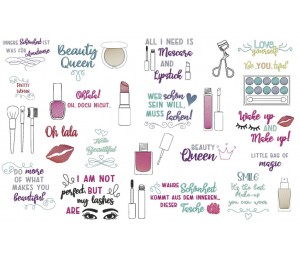 INNERE Schönheit IST
WAS FÜR
Amateure
Beauty
Queen
ALL I NEED IS
Mascara
AND
Lipstick
Love
yourself
BE YOU.tiful
Pretty
woman
Ohhh!
OU. DOCH NICHT.
WER schön
SEIN WILL,
MUSS
lachen!
Wake up
AND
Make up!
Oh lala
Hello
Beautiful
Beauty
Queen
LITTLE BAG OF
magic
DO MORE
OF WHAT
MAKES YOU
beautiful
I AM NOT
perfect BUT
my lashes
ARE
WAHRE Schönheit
KOMMT AUS DEM INNEREN...
DIESER Tasche
SMILE
It's the best
Make up
you can wear